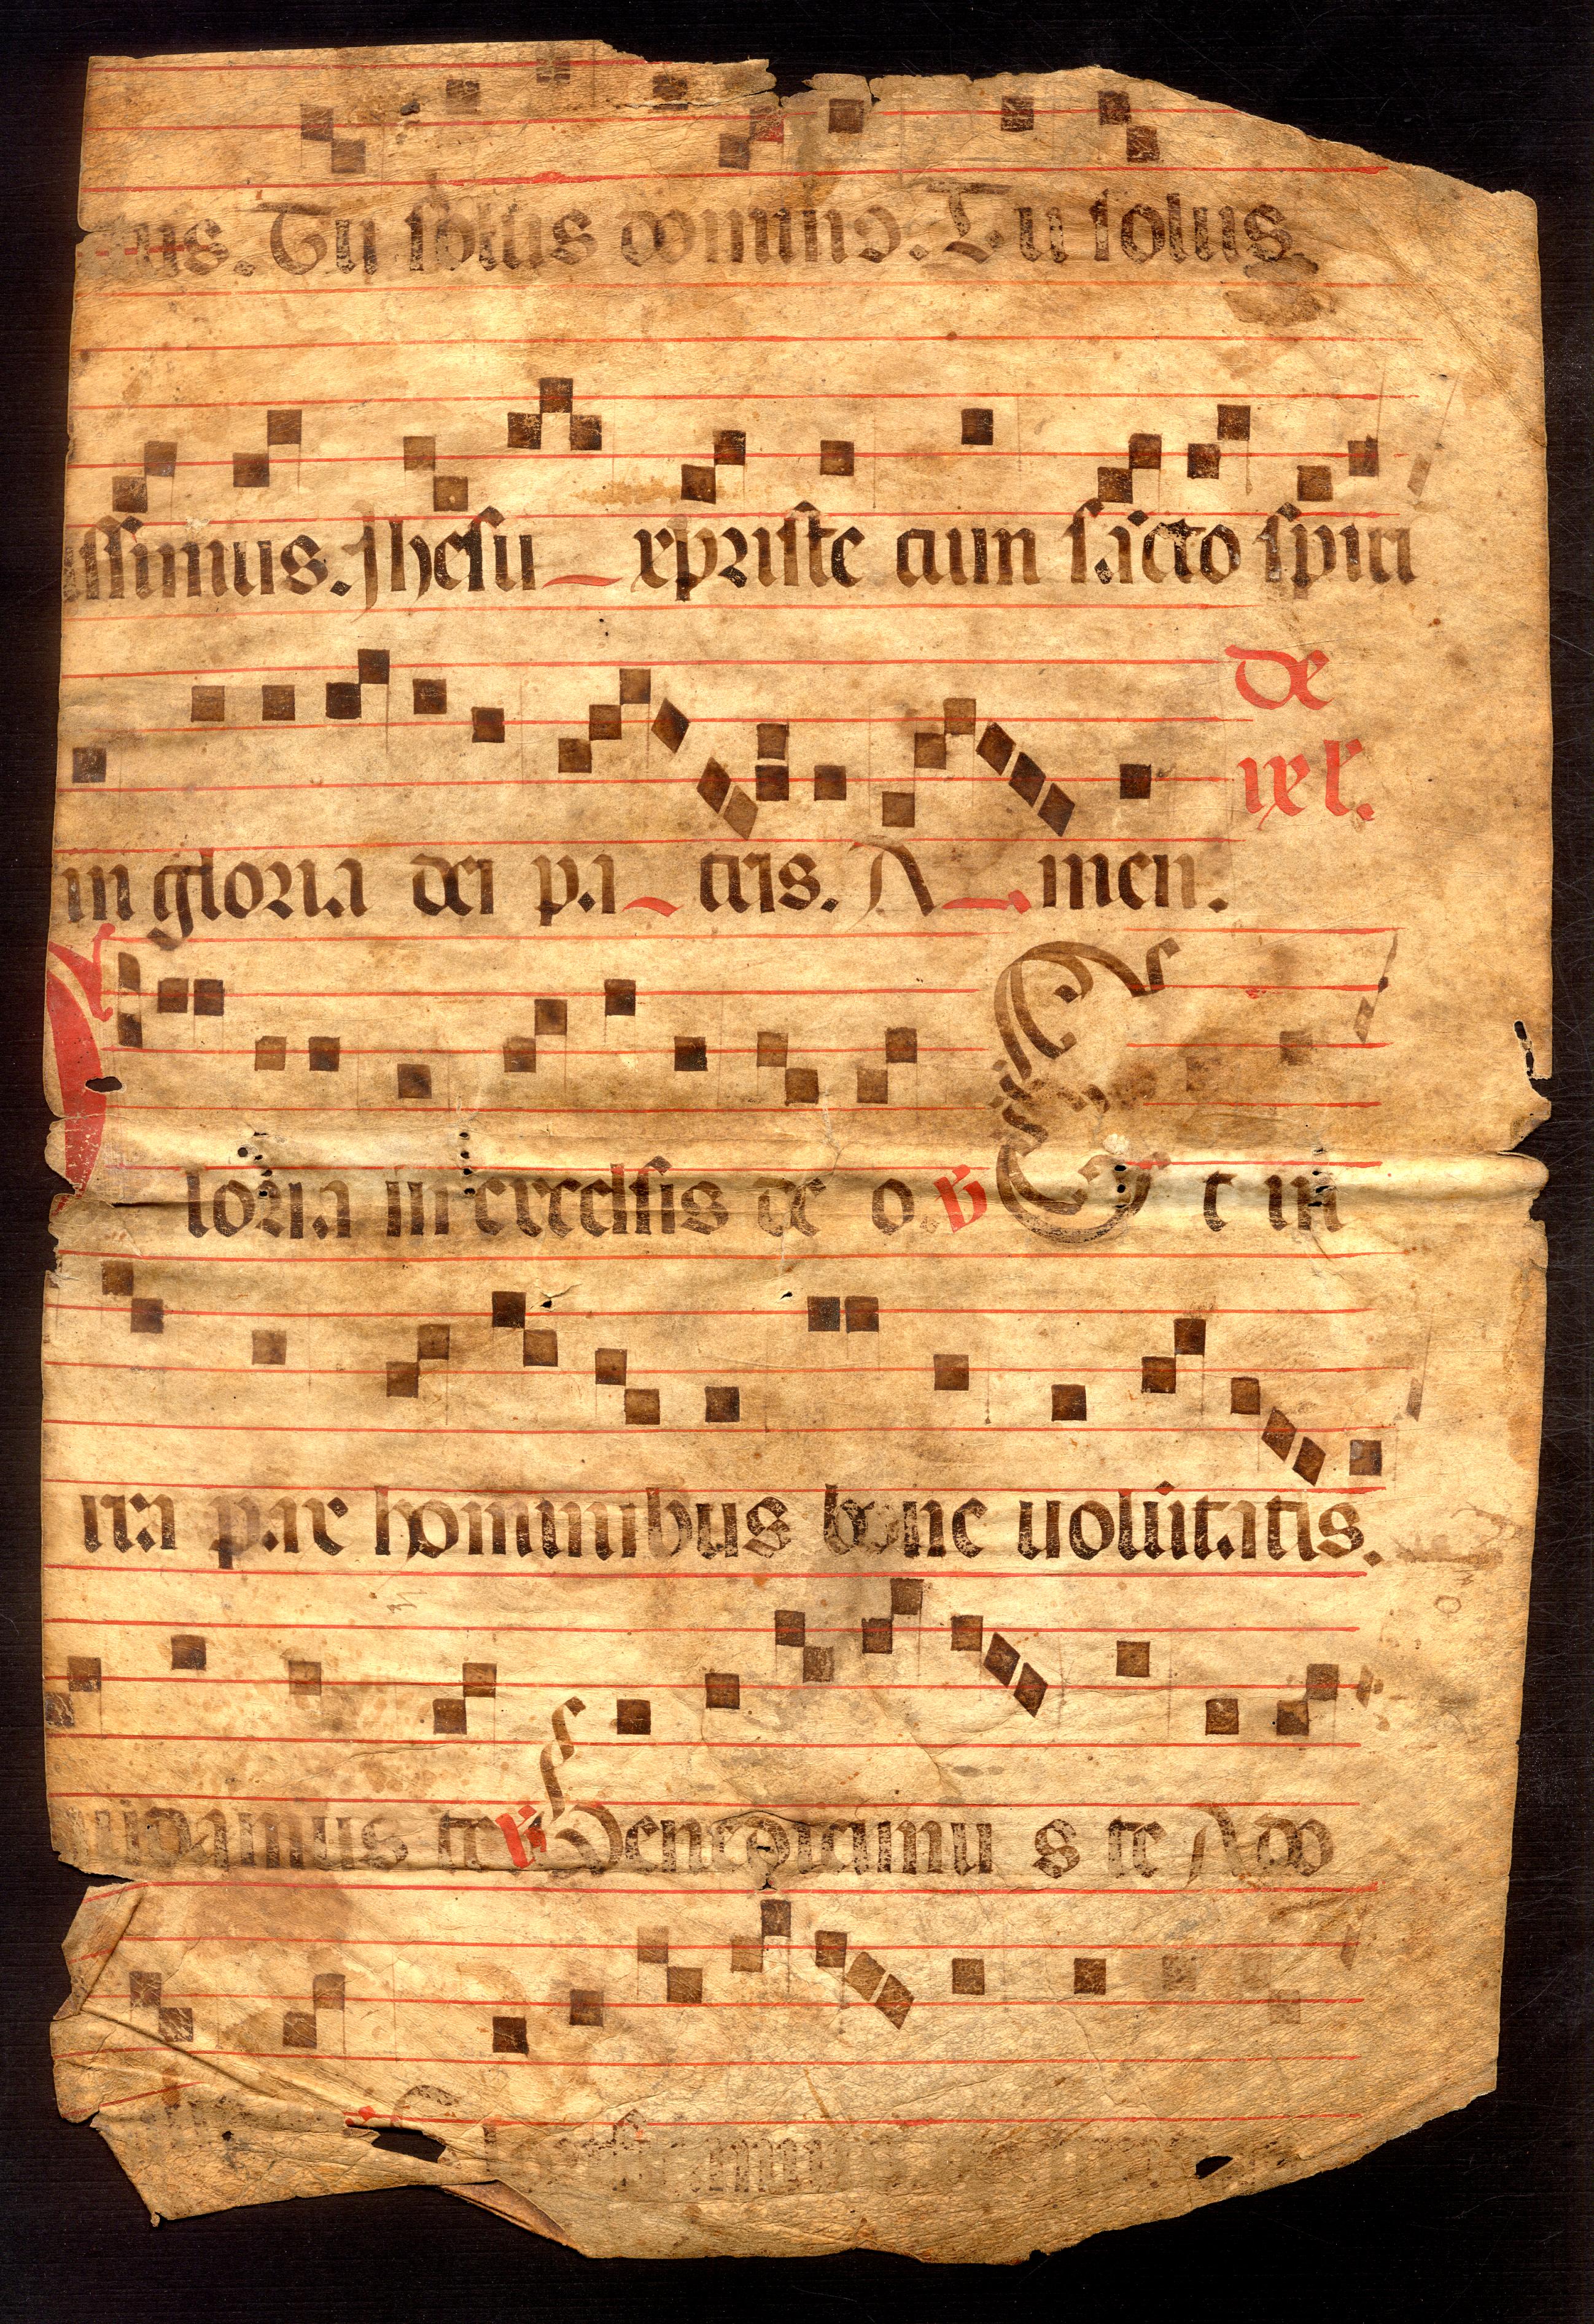 us. Tu solus dominꝰ. Tu solus
issimus. Jhesu xpriste cum sācto spiri
de
ixl.
in gloria dei patris. Amen.
loria in excelsis de o. ꝟ Et in
rra pax hominibus bone uolūtatis.
udamus te ꝟ Benedicimu s te Ado